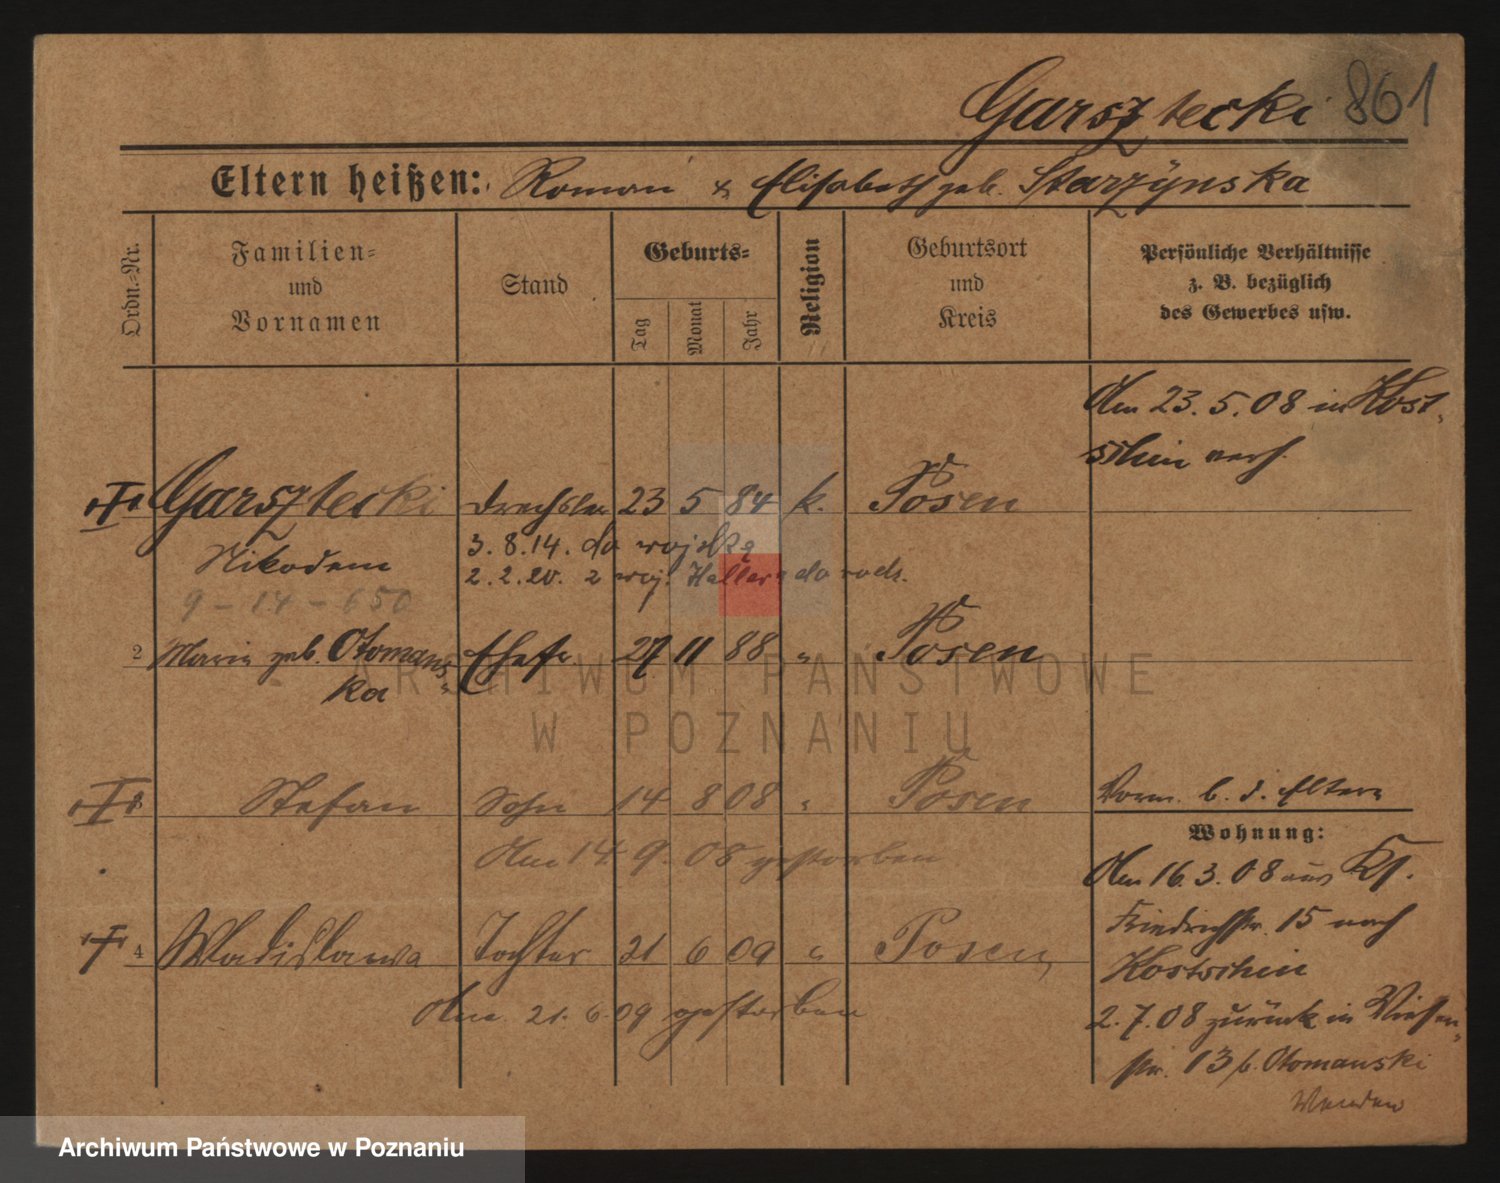 Garsztecki 861
Eltern heißen: Roman & Elisabeth geb. Starzÿnska
Ordn.-Nr.
Familien- und Vornamen
Stand
Geburts-
Tag
Monat
Jahr
Religion
Geburtsort und Kreis
Persönliche Verhältnisse
z. B. bezüglich
des Gewerbes usw.
Am 23.5.08 in Kost-
schin verh.
Garsztecki Drechsler 23 5 84 k. Posen
Nikodem
3.8.14. do wojska
2.2.20. z woj. Hallera do rodz.
9-14-650
2 Marie geb. Otomans- Ehefr. 27 11 88 " Posen
ka
3 Stefan Sohn 14 8 08 " Posen
Am 14.9.08 gestorben
4 Wladislawa Tochter 21 6 09 " Posen
Am 21.6.09 gestorben
Vorm. b. d. Eltern
Wohnung:
Am 16.3.08 aus Kl.
Friedrichstr. 15 nach
Kostschin
2.7.08 zurück in Wiesen-
str. 13 b. Otomanski
ARCHIWUM PAŃSTWOWE
W POZNANIU
Archiwum Państwowe w Poznaniu